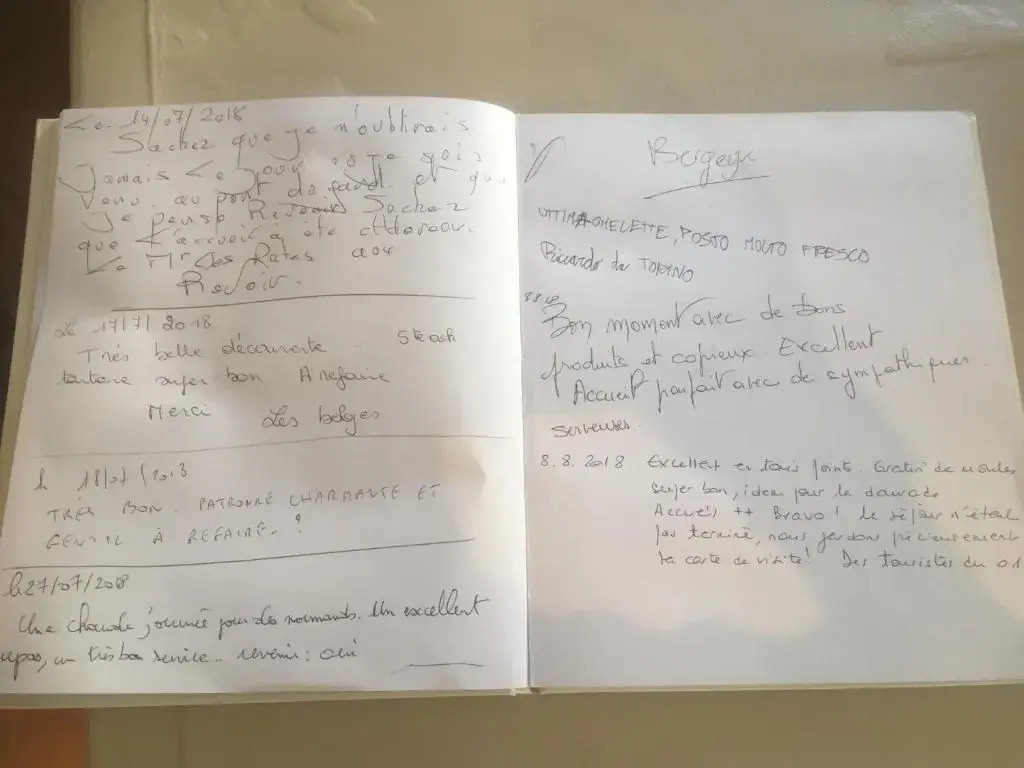 Le 14/07/2018
Sachez que je n'oublirais
Jamais Le Jour
Venu au pont du gard et que
Je pense Revenir Sachez
que L'accueil a été
Le Mr des Pates aou
Revoir.
Le 17/7/2018
Très belle découverte Steack
tartare super bon A refaire
Merci Les belges
le 18/07/2018
TRÈS BON. PATRONNE CHARMANTE ET
GENTIL À REFAIRE. !
le 27/07/2018
Une chaude journée pour des normands. Un excellent
repas, un très bon service.. revenir: oui
Bergeyx
OTTIMA OMELETTE, POSTO MOLTO FRESCO
Riccardo da TORINO
8.8.18
Bon moment avec de bons
produits et copieux. Excellent
Accueil parfait avec de sympathiques
serveuses.
8.8.2018 Excellent en tous points. Gratin de moules
super bon, idem pour la daurade
Accueil ++ Bravo! Le séjour n'étant
pas terminé, nous gardons précieusement
la carte de visite! Des touristes du 01